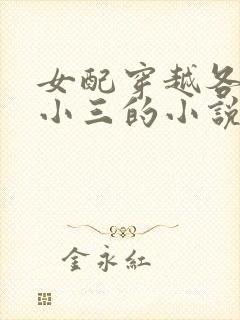 女配穿越各
小三的小說
金永紅